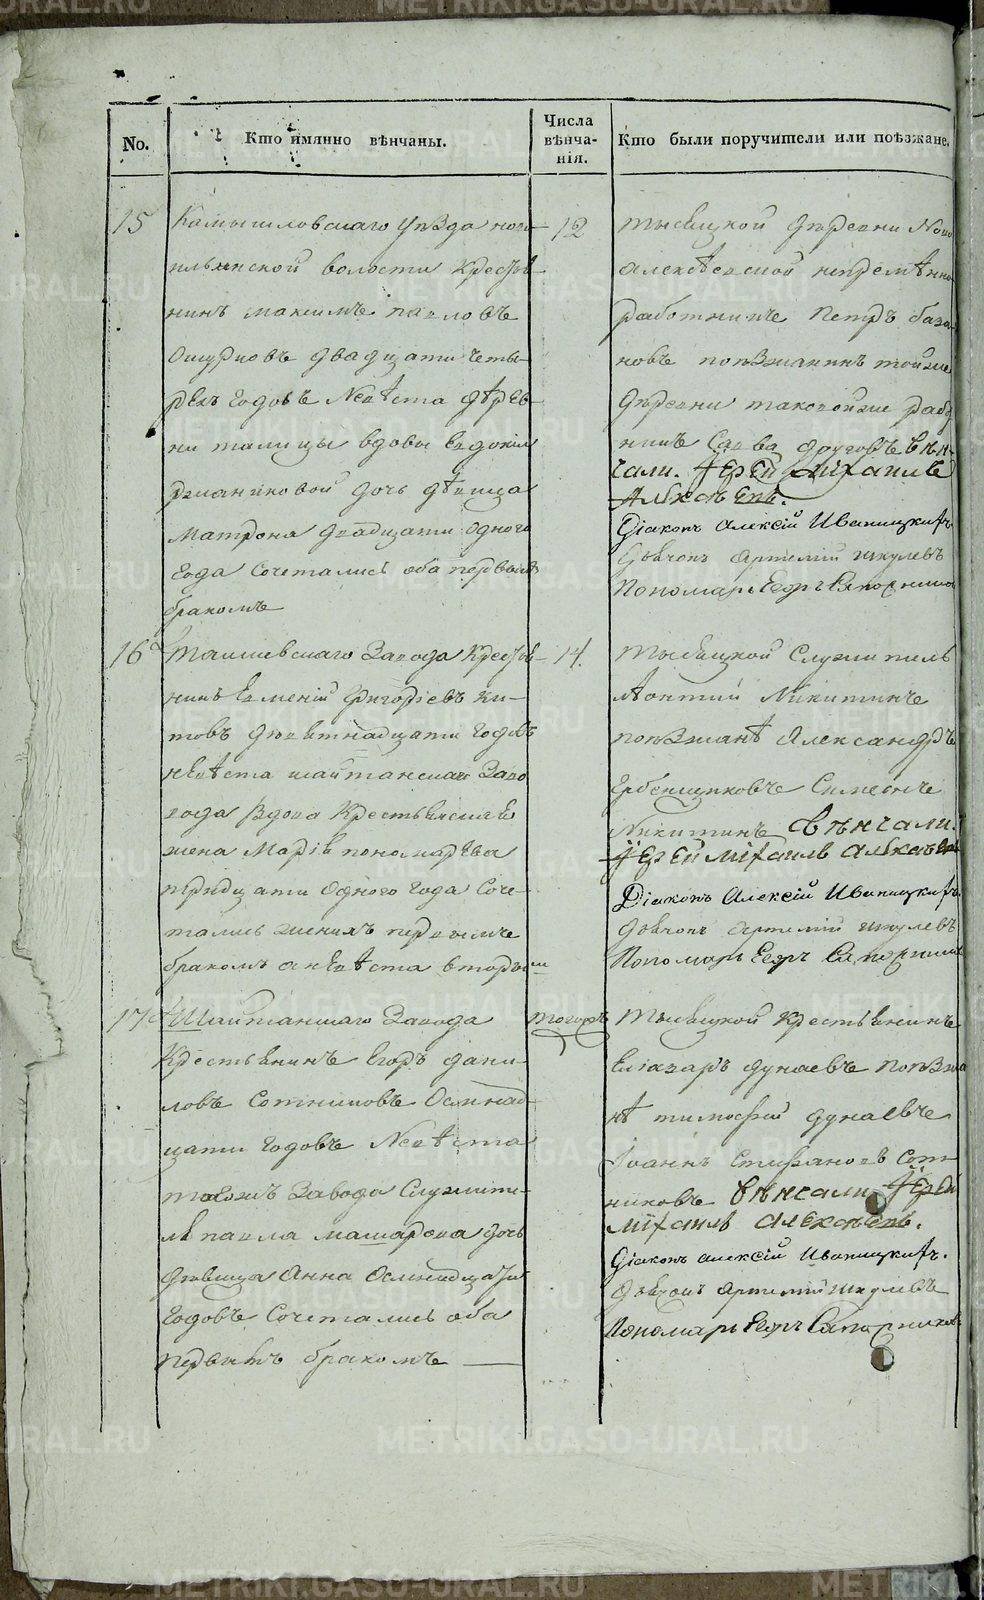 METRIKI.GASO-URAL.RU
No.
Кто имянно вѣнчаны.
Числа
вѣнча-
нія.
Кто были поручители или поѣзжане.
15
Камышловскаго уѣзда ново
ильинской волости Кресть
нинъ максимъ павловъ
Ошурковъ двадцати четы-
рехъ годовъ Невѣста дерев-
ни талицы вдовы
дочь дѣвица
матрона двадцати одного
года Сочетались оба первымъ
бракомъ
12
тысяцкой деревни Ново
алексѣевской непремѣнно
работникъ Петръ база-
новъ поѣзжанинъ тойже
деревни таковойже рабо
никъ Савва друговъ вѣн-
чали. Iерей михаилъ
Алексѣевъ.
Діаконъ Алексій Иваницкихъ
Дьячокъ Артемій шкулевъ
Пономарь Егоръ Сапожников
16
Талицкаго Завода Кресть
нинъ Евмений Григорьевъ Ки-
товъ девятнадцати годовъ
невѣста шайтанскаго Заво
вдова Крестьянская
жена Марія пономарева
тридцати одного года Соче-
тались женихъ первымъ
бракомъ а невѣста вторым
14.
тысяцкой Служитель
леонтий Никитинъ
поѣзжанѣ Александръ
Гребенщиковъ Симеонъ
Никитинъ вѣнчали.
Iерей михаилъ алексѣевъ
Діаконъ Алексій Иваницкихъ.
Дьячокъ Артемій шкулевъ
Пономарь Егоръ Сапожников
17
Шайтанскаго Завода
Крестьянинъ Егоръ дани-
ловъ Сотниковъ Осмнад-
цати годовъ Невѣста
тогожъ Завода Служите-
ля павла дочь
дѣвица Анна Осмнадцати
годовъ Сочетались оба
первымъ бракомъ
тогожъ
Тысяцкой крестьянинъ
Елиазаръ дунаевъ поѣзжа
нѣ тимофей дунаевъ
Iоаннъ Стефановъ Сот-
никовъ вѣнчали Iерей
михаилъ алексѣевъ.
Діаконъ алексій Иваницкихъ.
Дьячокъ Артемій шкулевъ
Пономарь Егоръ Сапожников